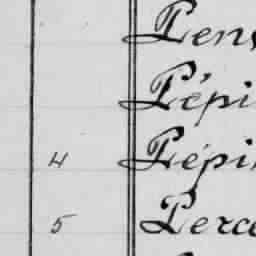 Pens
Pépi
4 Pépi
5 Perce